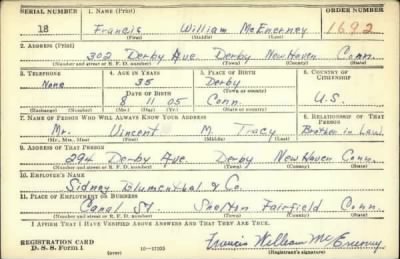 SERIAL NUMBER 1. NAME (Print) ORDER NUMBER
18 Francis William McEnerney 1692
(First) (Middle) (Last)
2. ADDRESS (Print)
302 Derby Ave. Derby New Haven Conn.
(Number and street or R. F. D. number) (Town) (County) (State)
3. TELEPHONE 4. AGE IN YEARS 5. PLACE OF BIRTH 6. COUNTRY OF CITIZENSHIP
None 35 Derby
(Town or county)
DATE OF BIRTH
8 11 05 Conn. U.S.
(Exchange) (Number) (Mo.) (Day) (Yr.) (State or country)
7. NAME OF PERSON WHO WILL ALWAYS KNOW YOUR ADDRESS 8. RELATIONSHIP OF THAT PERSON
Mr. Vincent M. Tracy Brother in Law
(Mr., Mrs., Miss) (First) (Middle) (Last)
9. ADDRESS OF THAT PERSON
294 Derby Ave. Derby New Haven Conn.
(Number and street or R. F. D. number) (Town) (County) (State)
10. EMPLOYER'S NAME
Sidney Blumenthal & Co.
11. PLACE OF EMPLOYMENT OR BUSINESS
Canal St. Shelton Fairfield Conn.
(Number and street or R. F. D. number) (Town) (County) (State)
I AFFIRM THAT I HAVE VERIFIED ABOVE ANSWERS AND THAT THEY ARE TRUE.
REGISTRATION CARD
D. S. S. Form 1 (over) Francis William McEnerney
(Registrant's signature)